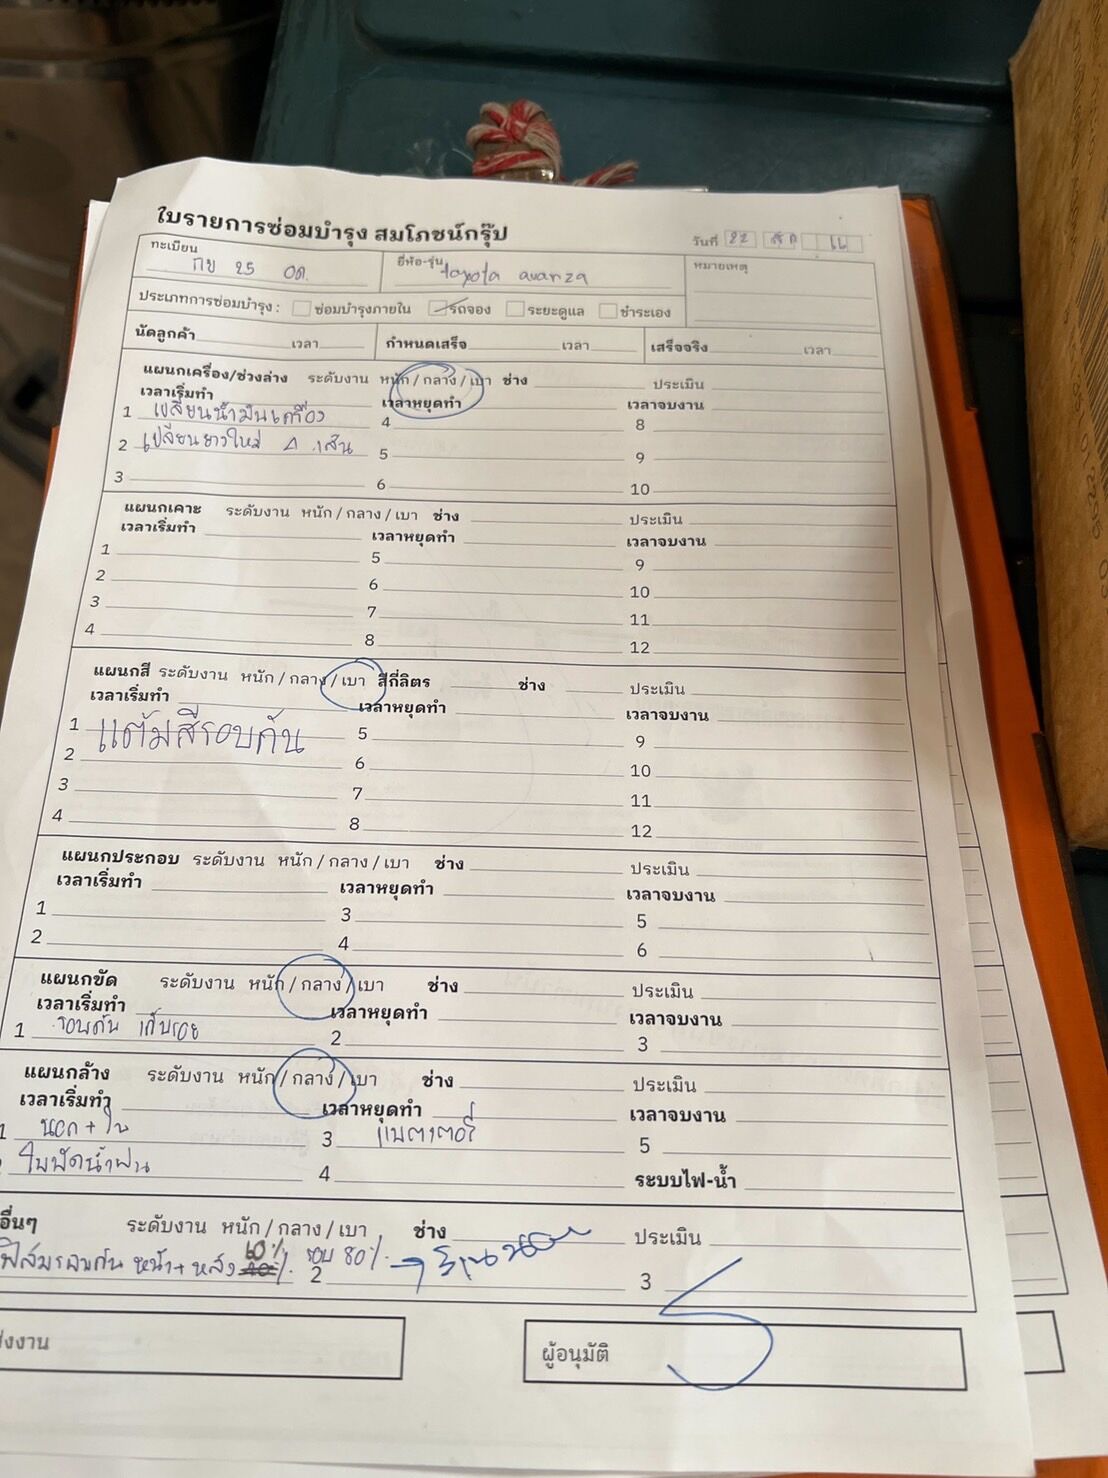 ใบรายการซ่อมบำรุง สมโภชน์กรุ๊ป
วันที่ 22
ทะเบียน กข 25 อด. ยี่ห้อ-รุ่น toyota avanza หมายเหตุ
ประเภทการซ่อมบำรุง : ซ่อมบำรุงภายใน รถจอง ระยะดูแล ชำระเอง
นัดลูกค้า เวลา กำหนดเสร็จ เวลา เสร็จจริง เวลา
แผนกเครื่อง/ช่วงล่าง ระดับงาน หนัก / กลาง / เบา ช่าง ประเมิน
เวลาเริ่มทำ เวลาหยุดทำ เวลาจบงาน
1 เปลี่ยนน้ำมันเครื่อง 4 8
2 เปลี่ยนยางใหม่ 4 เส้น 5 9
3 6 10
แผนกเคาะ ระดับงาน หนัก / กลาง / เบา ช่าง ประเมิน
เวลาเริ่มทำ เวลาหยุดทำ เวลาจบงาน
1 5 9
2 6 10
3 7 11
4 8 12
แผนกสี ระดับงาน หนัก / กลาง / เบา สีกี่ลิตร ช่าง ประเมิน
เวลาเริ่มทำ เวลาหยุดทำ เวลาจบงาน
1 แต้มสีรอบคัน 5 9
2 6 10
3 7 11
4 8 12
แผนกประกอบ ระดับงาน หนัก / กลาง / เบา ช่าง ประเมิน
เวลาเริ่มทำ เวลาหยุดทำ เวลาจบงาน
1 3 5
2 4 6
แผนกขัด ระดับงาน หนัก / กลาง / เบา ช่าง ประเมิน
เวลาเริ่มทำ เวลาหยุดทำ เวลาจบงาน
1 รอบคัน เก็บรอย 2 3
แผนกล้าง ระดับงาน หนัก / กลาง / เบา ช่าง ประเมิน
เวลาเริ่มทำ เวลาหยุดทำ เวลาจบงาน
1 นอก + ใน 3 แบตเตอรี่ 5
ใบปัดน้ำฝน 4 ระบบไฟ-น้ำ
อื่นๆ ระดับงาน หนัก / กลาง / เบา ช่าง ประเมิน
ฟิล์มรอบคัน หน้า + หลัง 60% รอบ 80% 2 3
ส่งงาน ผู้อนุมัติ